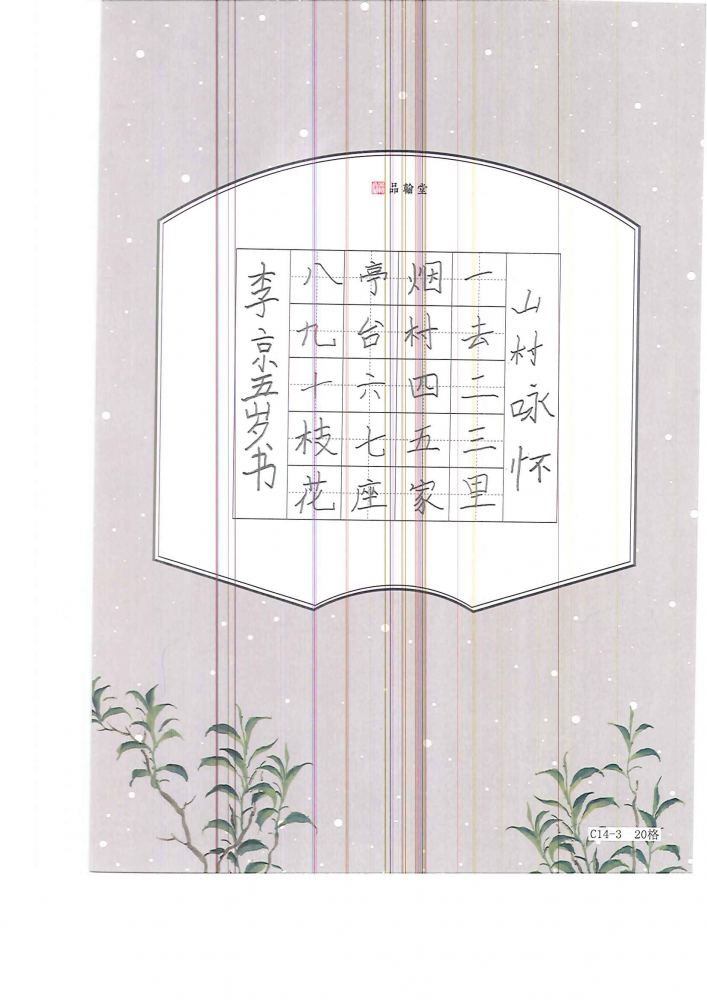 品翰堂
山村咏怀
一去二三里
烟村四五家
亭台六七座
八九十枝花
李京五岁书
C14-3 20格